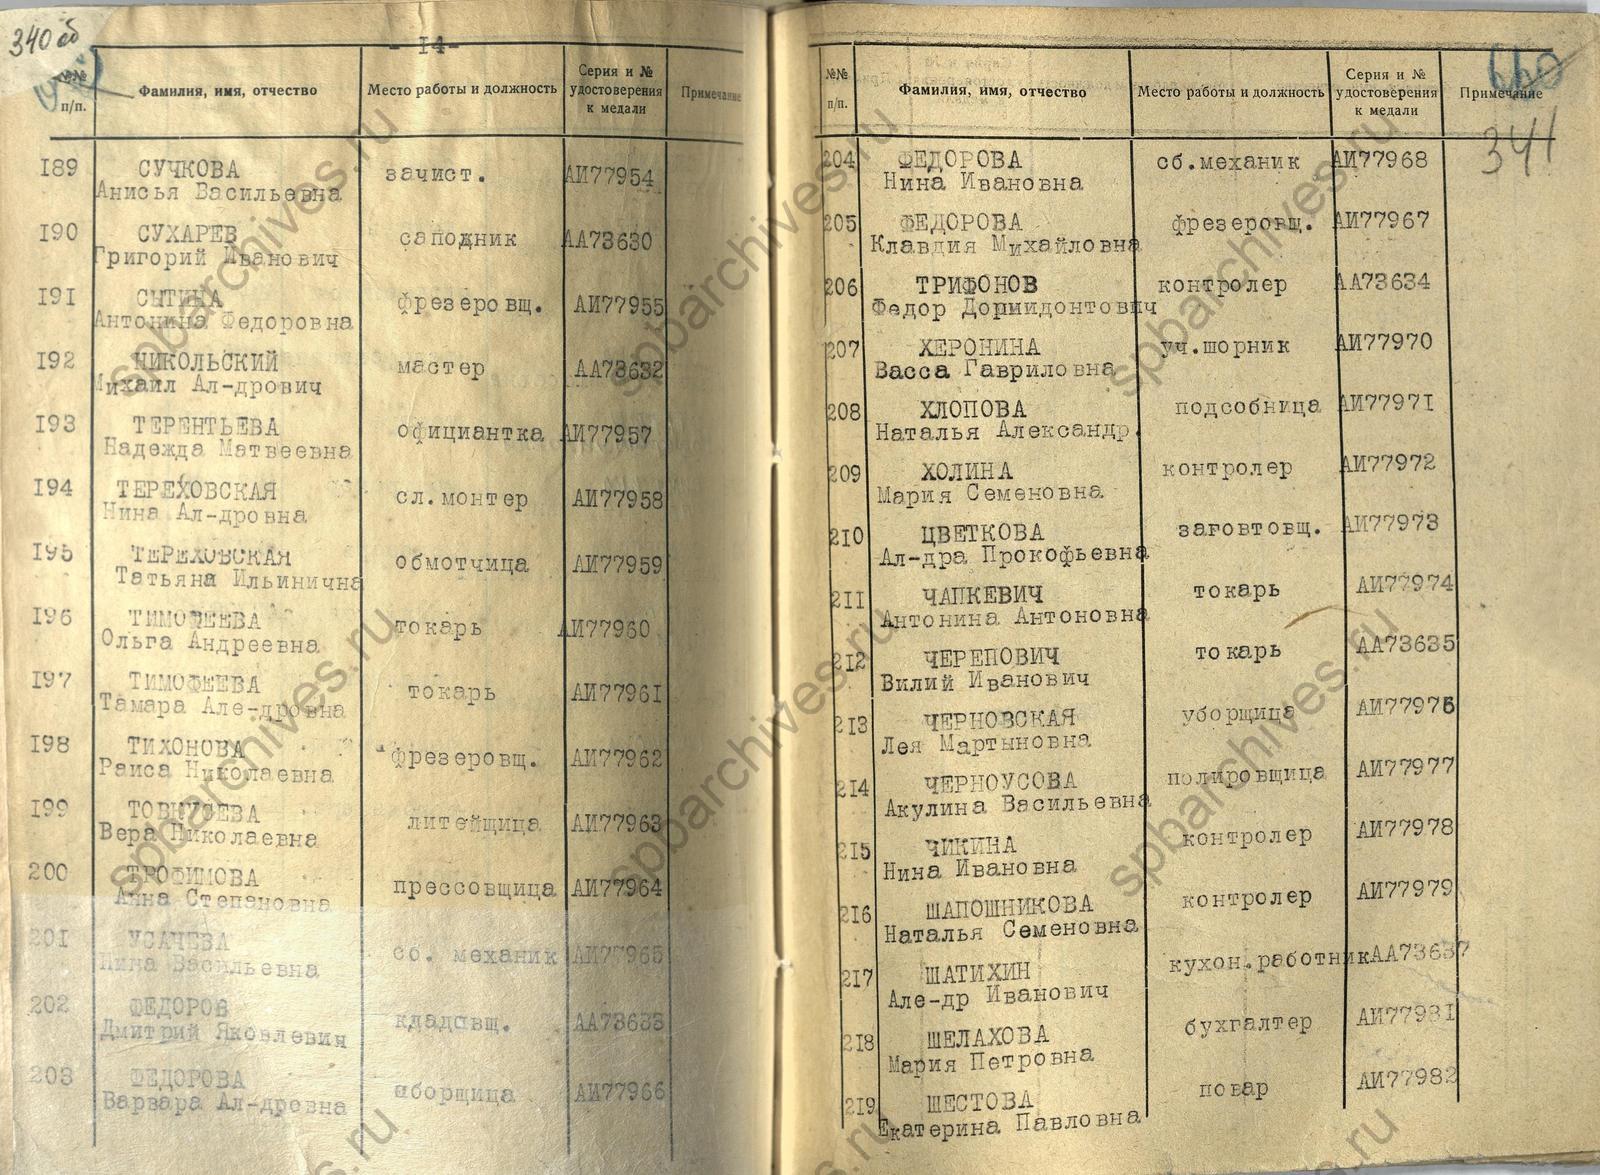 340 об
- 14-
№№ п/п. Фамилия, имя, отчество Место работы и должность Серия и № удостоверения к медали Примечание
189 СУЧКОВА зачист. АИ77954
Анисья Васильевна
190 СУХАРЕВ сапожник АА73630
Григорий Иванович
191 СЫТИНА фрезеровщ. АИ77955
Антонина Федоровна
192 НИКОЛЬСКИЙ мастер АА73632
Михаил Ал-дрович
193 ТЕРЕНТЬЕВА официантка АИ77957
Надежда Матвеевна
194 ТЕРЕХОВСКАЯ сл.монтер АИ77958
Нина Ал-дровна
195 ТЕРЕХОВСКАЯ обмотчица АИ77959
Татьяна Ильинична
196 ТИМОФЕЕВА токарь АИ77960
Ольга Андреевна
197 ТИМОФЕЕВА токарь АИ77961
Тамара Але-дровна
198 ТИХОНОВА фрезеровщ. АИ77962
Раиса Николаевна
199 литейщица АИ77963
Вера Николаевна
200 ТРОФИМОВА прессовщица АИ77964
Анна Степановна
201 УСАЧЕВА сб. механик АИ77965
Нина Васильевна
202 ФЕДОРОВ кладовщ. АА73633
Дмитрий Яковлевич
203 ФЕДОРОВА уборщица АИ77966
Варвара Ал-дровна
660
341
№№ п/п. Фамилия, имя, отчество Место работы и должность Серия и № удостоверения к медали Примечание
204 ФЕДОРОВА сб.механик АИ77968
Нина Ивановна
205 ФЕДОРОВА фрезеровщ. АИ77967
Клавдия Михайловна
206 ТРИФОНОВ контролер АА73634
Федор Дормидонтович
207 ХЕРОНИНА уч.шорник АИ77970
Васса Гавриловна
208 ХЛОПОВА подсобница АИ77971
Наталья Александр.
209 ХОЛИНА контролер АИ77972
Мария Семеновна
210 ЦВЕТКОВА заговтовщ. АИ77973
Ал-дра Прокофьевна
211 ЧАПКЕВИЧ токарь АИ77974
Антонина Антоновна
212 ЧЕРЕПОВИЧ токарь АА73635
Вилий Иванович
213 ЧЕРНОВСКАЯ уборщица АИ77976
Лея Мартыновна
214 ЧЕРНОУСОВА полировщица АИ77977
Акулина Васильевна
215 ЧИКИНА контролер АИ77978
Нина Ивановна
216 ШАПОШНИКОВА контролер АИ77979
Наталья Семеновна
217 ШАТИХИН кухон.работник АА73637
Але-др Иванович
218 ШЕЛАХОВА бухгалтер АИ77981
Мария Петровна
219 ШЕСТОВА повар АИ77982
Екатерина Павловна
spbarchives.ru
spbarchives.ru
spbarchives.ru
spbarchives.ru
spbarchives.ru
spbarchives.ru